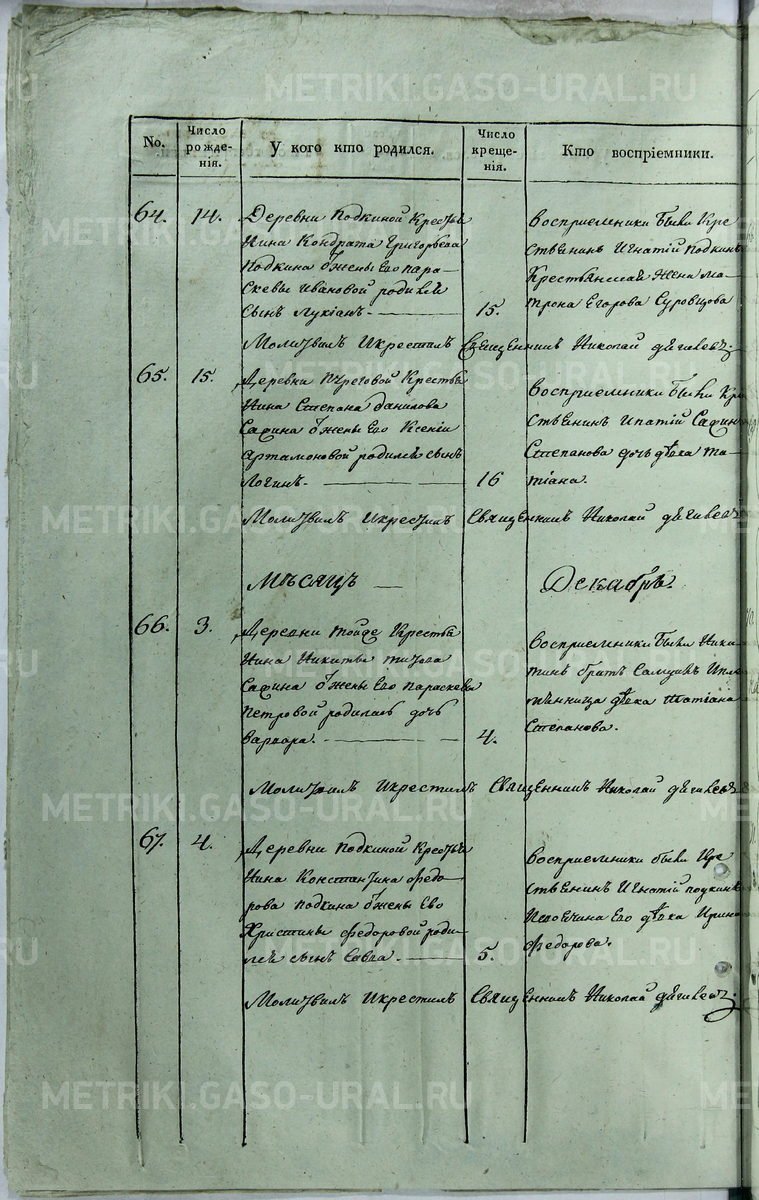 No.
Число рожде- нія.
У кого кто родился.
Число креще- нія.
Кто воспріемники.
64. 14. Деревни Подкиной Крестья
нина Кондрата Григорьева
Подкина ѿ жены Его пара-
скевы Ивановой родился
сынъ Лукіанъ. 15.
Воспріемники были Кре
стьенинъ Игнатій Подкинъ
Крестьянская жена Ма-
трона Егорова Суровцова
Молитвилъ и крестилъ Священникъ Николай
65. 15. Деревни Крестья
нина Степана Данилова
Сафина ѿ жены Его Ксеніи
Артамоновой родился сынъ
Логинъ. 16
Воспріемники были Кре
стьенинъ Ипатій Сафин
Степанова дочь дѣвка та-
тіана.
Молитвилъ и крестилъ Священникъ Николай
Мѣсяцъ Декабрь.
66. 3. Деревни тойже Крестья
нина Никиты Титова
Сафина ѿ жены Его Параскевы
Петровой родилась дочь
Варвара. 4.
Воспріемники были Ники
тинъ братъ и пле
мянница дѣвка Татіана
Степанова.
Молитвилъ и крестилъ Священникъ Николай
67. 4. Деревни Подкиной Крестья
нина Константина Федо-
рова Подкина ѿ жены Ево
Христины Федоровой роди-
лся сынъ Савва. 5.
Воспріемники были Кре
стьенинъ Игнатій подкинъ
Его дѣвка Ирина
Федорова.
Молитвилъ и крестилъ Священникъ Николай
METRIKI.GASO-URAL.RU